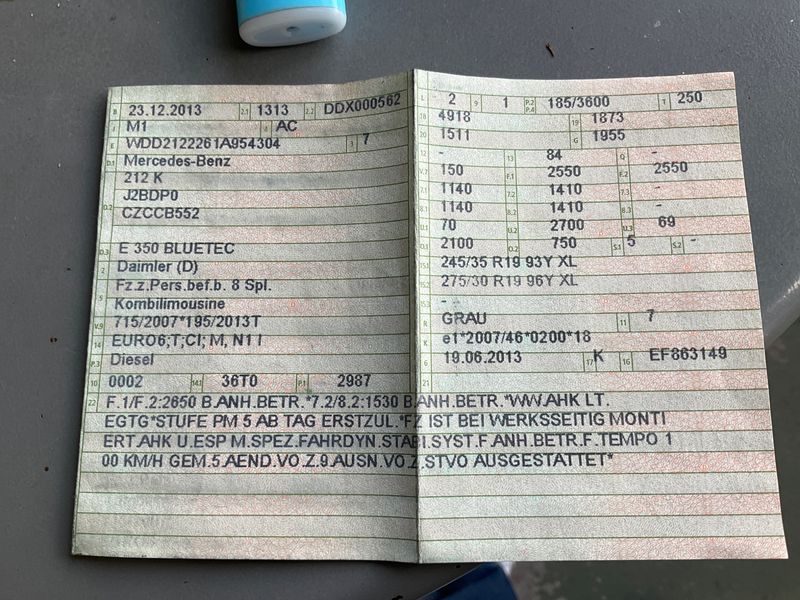 B 23.12.2013 2.1 1313 2.2 DDX000562
J M1 4 AC
E WDD2122261A954304 3 7
D.1 Mercedes-Benz
212 K
D.2 J2BDP0
CZCCB552
D.3 E 350 BLUETEC
2 Daimler (D)
5 Fz.z.Pers.bef.b. 8 Spl.
Kombilimousine
V.9 715/2007*195/2013T
14 EURO6;T;CI; M, N1 I
P.3 Diesel
10 0002 14.1 36T0 P.1 2987
L 2 9 1 P.2 P.4 185/3600 T 250
18 4918 19 1873
20 1511 G 1955
12 - 13 84 Q -
V.7 150 F.1 2550 F.2 2550
7.1 1140 7.2 1410 7.3 -
8.1 1140 8.2 1410 8.3 -
U.1 70 U.2 2700 U.3 69
O.1 2100 O.2 750 S.1 5 S.2 -
15.1 245/35 R19 93Y XL
15.2 275/30 R19 96Y XL
15.3 -
R GRAU 11 7
K e1*2007/46*0200*18
6 19.06.2013 17 K 16 EF863149
21
22 F.1/F.2:2650 B.ANH.BETR.*7.2/8.2:1530 B.ANH.BETR.*WW.AHK LT.
EGTG*STUFE PM 5 AB TAG ERSTZUL.*FZ IST BEI WERKSSEITIG MONTI
ERT.AHK U.ESP M.SPEZ.FAHRDYN.STABI.SYST.F.ANH.BETR.F.TEMPO 1
00 KM/H GEM.5.AEND.VO.Z.9.AUSN.VO.Z.STVO AUSGESTATTET*